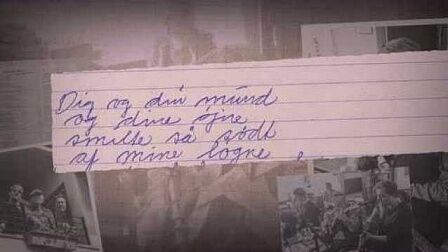 Dig og din mund
og dine øjne
smilte så sødt
af mine løgne,